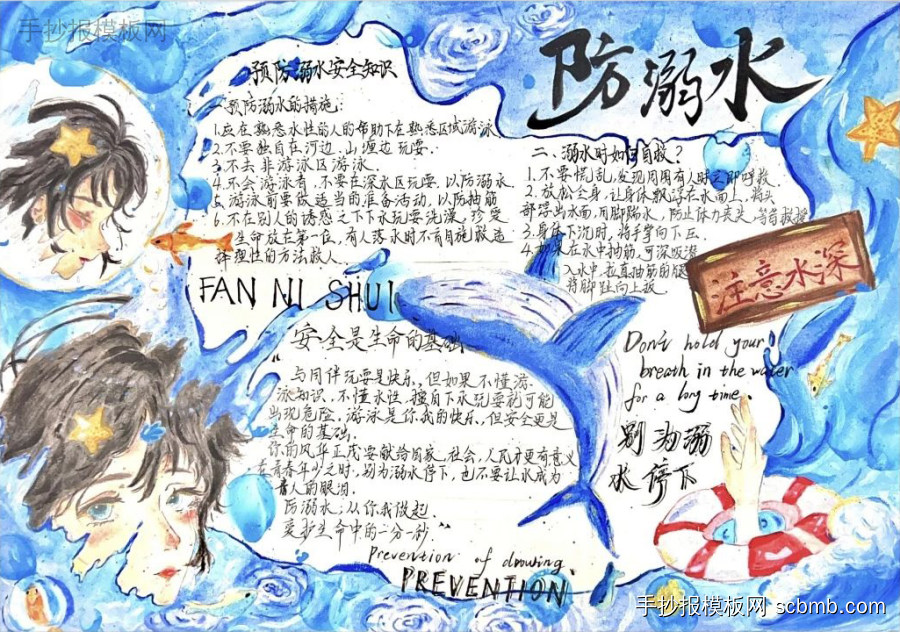 手抄报模板网
防溺水
预防溺水安全知识
一预防溺水的措施:
1.应在熟悉水性的人的帮助下在熟悉区域游泳
2.不要独自在河边.山塘边玩耍.
3.不去非游泳区游泳
4.不会游泳者.不要在深水区玩耍.以防溺水.
5.游泳前要做适当的准备活动,以防抽筋
6.不在别人的诱惑之下下水玩耍洗澡,珍爱
生命放在第一位,有人落水时不盲目施救选
择理性的方法救人.
二、溺水时如何自救?
1.不要慌乱,发现周围有人时立即呼救.
2.放松全身,让身体飘浮在水面上,将头
部浮出水面,用脚踢水,防止体力丧失,等待救援
3.身体下沉时,将手掌向下压.
4.如果在水中抽筋,可深吸潜
入水中,拉直抽筋的腿
将脚趾向上扳.
注意水深
FAN NI SHUI
"安全是生命的基础
与同伴玩耍是快乐,但如果不懂游
泳知识,不懂水性,擅自下水玩耍就可能
出现危险,游泳是你我的快乐,但安全更是
生命的基础.
你的风华正茂要献给国家,社会,人民才更有意义
在青春年少之时,别为溺水停下,也不要让水成为
人的眼泪.
防溺水,从你我做起.
爱护生命中的一分一秒."
Don't hold your
breath in the water
for a long time.
别为溺
水停下
Prevention of drowing.
PREVENTION
手抄报模板网 scbmb.com